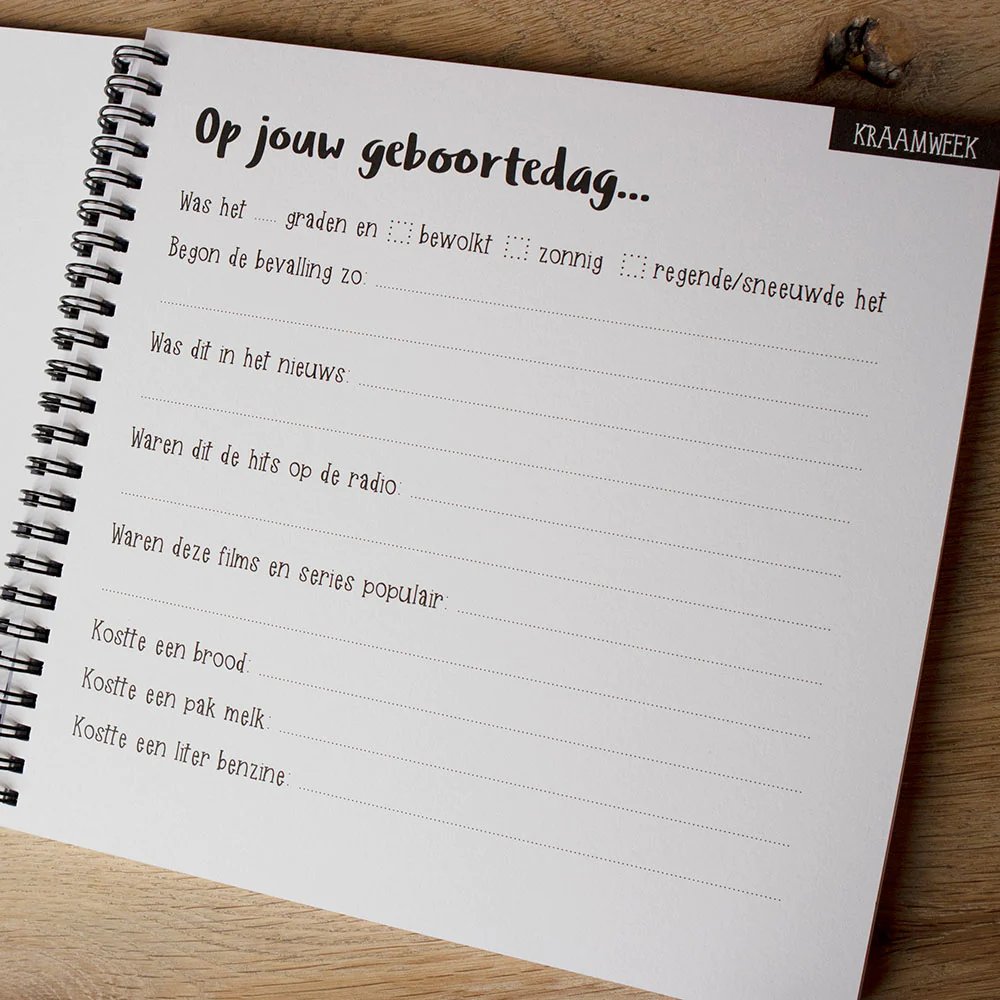 KRAAMWEEK
Op jouw geboortedag...
Was het ..... graden en bewolkt zonnig regende/sneeuwde het
Begon de bevalling zo:
Was dit in het nieuws:
Waren dit de hits op de radio:
Waren deze films en series populair:
Kostte een brood:
Kostte een pak melk:
Kostte een liter benzine: